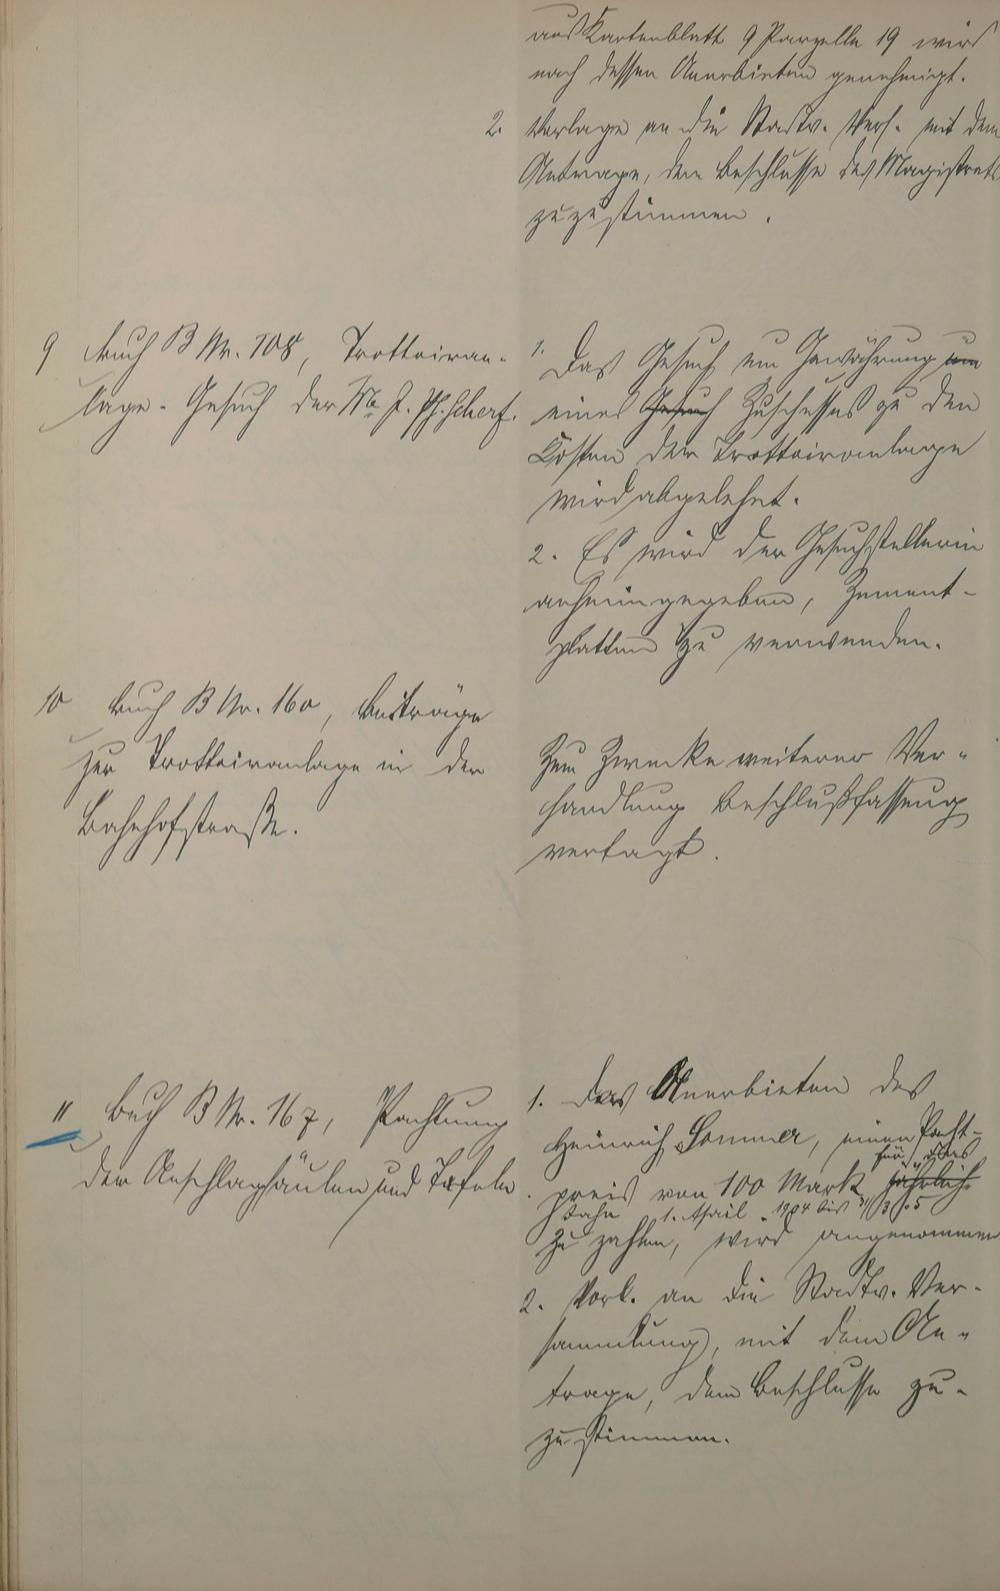 aus Kartenblatt 9 Parzelle 19 wird
nach dessen Anerbieten genehmigt.
2. Vorlage an die Stadtv. Vers. mit dem
Antrage, dem Beschlusse des Magistrats
zuzustimmen.
9 Buch B Nr. 108, Trottoiran-
lage. Gesuch der J. Ph. Scherf.
1. Das Gesuch um Gewährung um
eines Gesuch Zuschusses zu den
Kosten der Trottoiranlage
wird abgelehnt.
2. Es wird der Gesuchstellerin
anheimgegeben, Zement-
platten zu verwenden.
10 Buch B Nr. 160, Beiträge
zur Trottoiranlage in der
Bahnhofstraße.
Zum Zwecke weiterer Ver-
handlung Beschlußfassung
vertagt.
11 Buch B Nr. 167, Pachtung
der Anschlagsäulen und Tafeln.
1. Das Anerbieten des
Heinrich Sommer, einen Pacht-
für das
preis von 100 Mark jährlich
Jahr 1. April 1904 bis 31/3 05
zu zahlen, wird angenommen
2. Vorl. an die Stadtv. Ver-
sammlung, mit dem An-
trage, dem Beschlusse zu-
zustimmen.